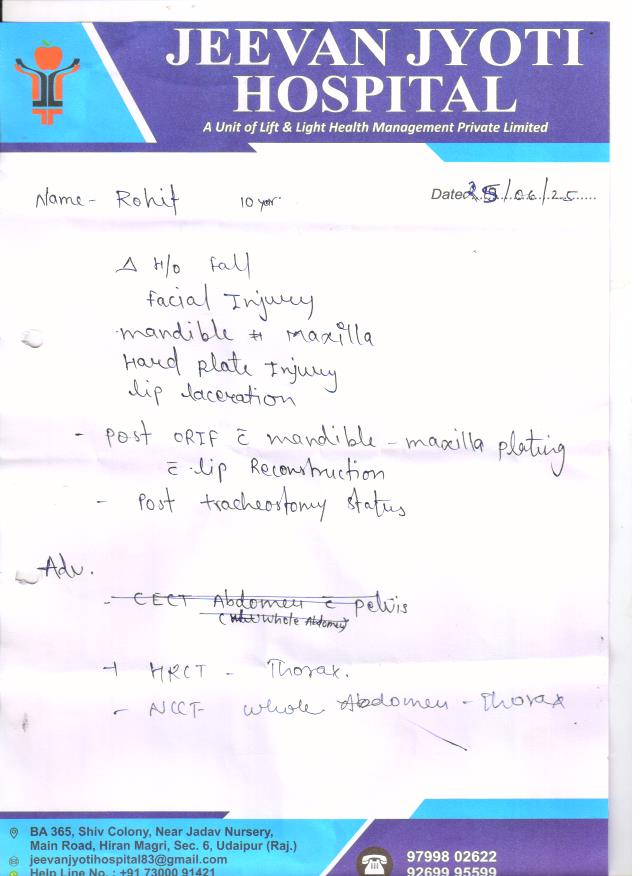 JEEVAN JYOTI
HOSPITAL
A Unit of Lift & Light Health Management Private Limited
Name - Rohit 10 year. Dated 25/06/25
Δ H/o fall
facial Injury
mandible # maxilla
Hard plate Injury
lip laceration
- Post ORIF c̄ mandible - maxilla plating
c̄ lip Reconstruction
- Post tracheostomy status
Adv.
- CECT Abdomen c̄ pelvis
(whole Abdomen)
+ HRCT - Thorax.
- NCCT whole Abdomen - Thorax
BA 365, Shiv Colony, Near Jadav Nursery,
Main Road, Hiran Magri, Sec. 6, Udaipur (Raj.)
jeevanjyotihospital83@gmail.com
Help Line No. : +91 73000 91421
97998 02622
92699 95599